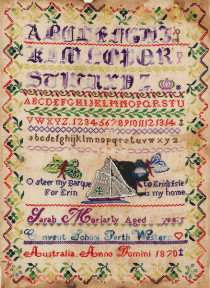 ABCDEFGHI
KLMNOPQR
STUVWXYZ
ABCDEFGHIJKLMNOPQRSTU
VWXYZ 1234567891011121314
abcdefghijklmnopqrstuvwxyz
O steer my Barque to Erin's Isle
For Erin is my home
Sarah Moriarty Aged years
Convent School Perth Western
Australia Anno Domini 1870